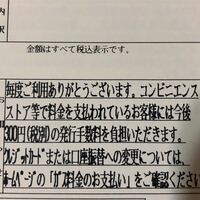 内
訳
金額はすべて税込表示です。
毎度ご利用ありがとうございます。コンビニエンス
ストア等で料金を支払われているお客様には今後
300円(税別)の発行手数料を負担いただきます。
ｸﾚｼﾞｯﾄｶｰﾄﾞまたは口座振替への変更については、
ﾎｰﾑﾍﾟｰｼﾞの「ｶﾞｽ料金のお支払い」をご確認ください